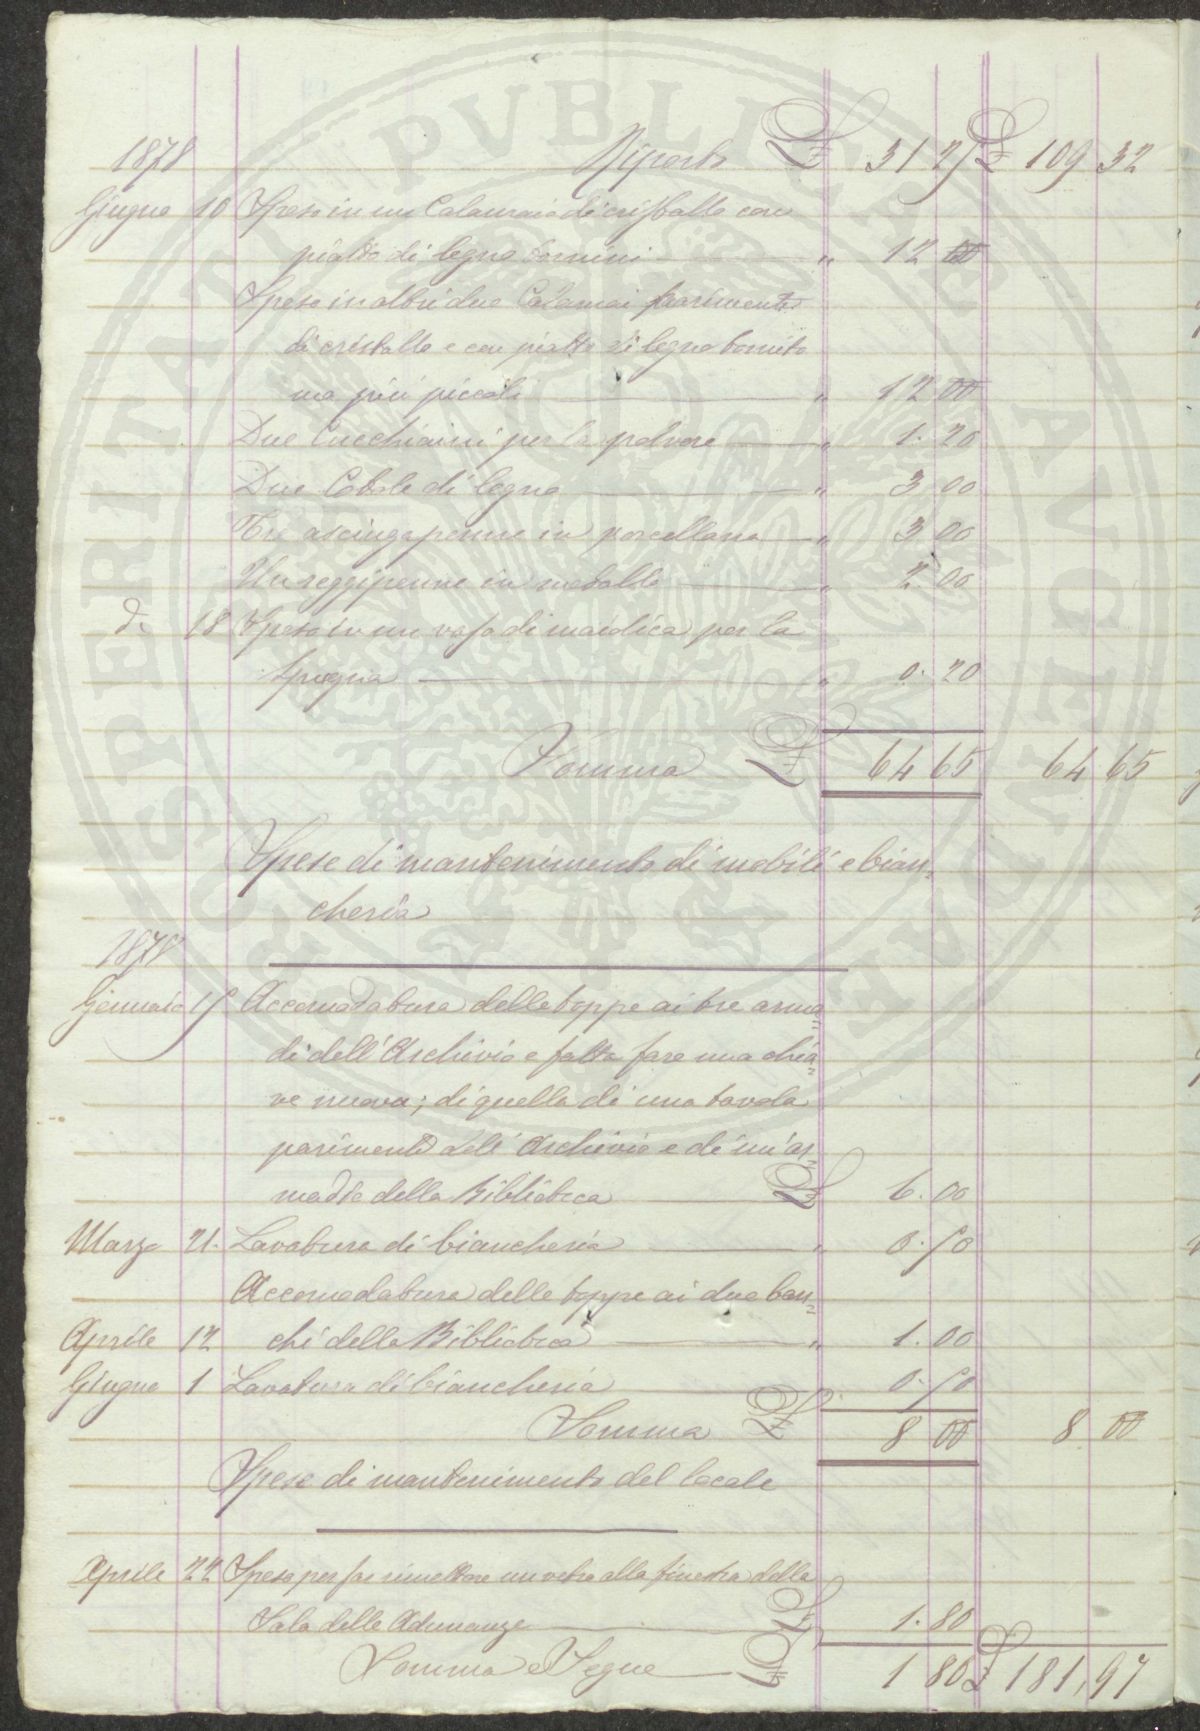 1878 Riporto £ 31 25 £ 109 32
Giugno 10 Speso in un Calamaio di cristallo con
piatto di legno tornini " 12 00
Speso in altri due Calamai parimente
di cristallo e con piatto di legno tornito
ma più piccoli " 12 00
Due Cucchiaini per la polvere " 1. 20
Due Cotole di legno " 3 00
Tre asciugapenne in porcellana " 3 00
Un reggipenne in metallo " 2. 00
do 18 Speso in un vaso di maiolica per la
spugna " 0. 20
Somma £ 64 65 64 65
Spese di mantenimento di mobili e bian=
cheria
1878
Gennaio 15 Accomodatura delle toppe ai tre arma=
di dell'Archivio e fatta fare una chia=
ve nuova; di quella di una tavola
parimente dell'Archivio e di un'ar=
madio della Biblioteca £ 6. 00
Marzo 21. Lavatura di biancheria " 0. 50
Accomodatura delle toppe ai due ban=
Aprile 12 chi della Biblioteca " 1. 00
Giugno 1 Lavatura di biancheria " 0. 50
Somma £ 8 00 8 00
Spese di mantenimento del locale
Aprile 22 Spesa per far rimettere un vetro alla finestra della
Sala delle Adunanze £ 1. 80
Somma e Segue £ 1 80 £ 181, 97
PROSPERITATI PVBLICAE AVGENDAE